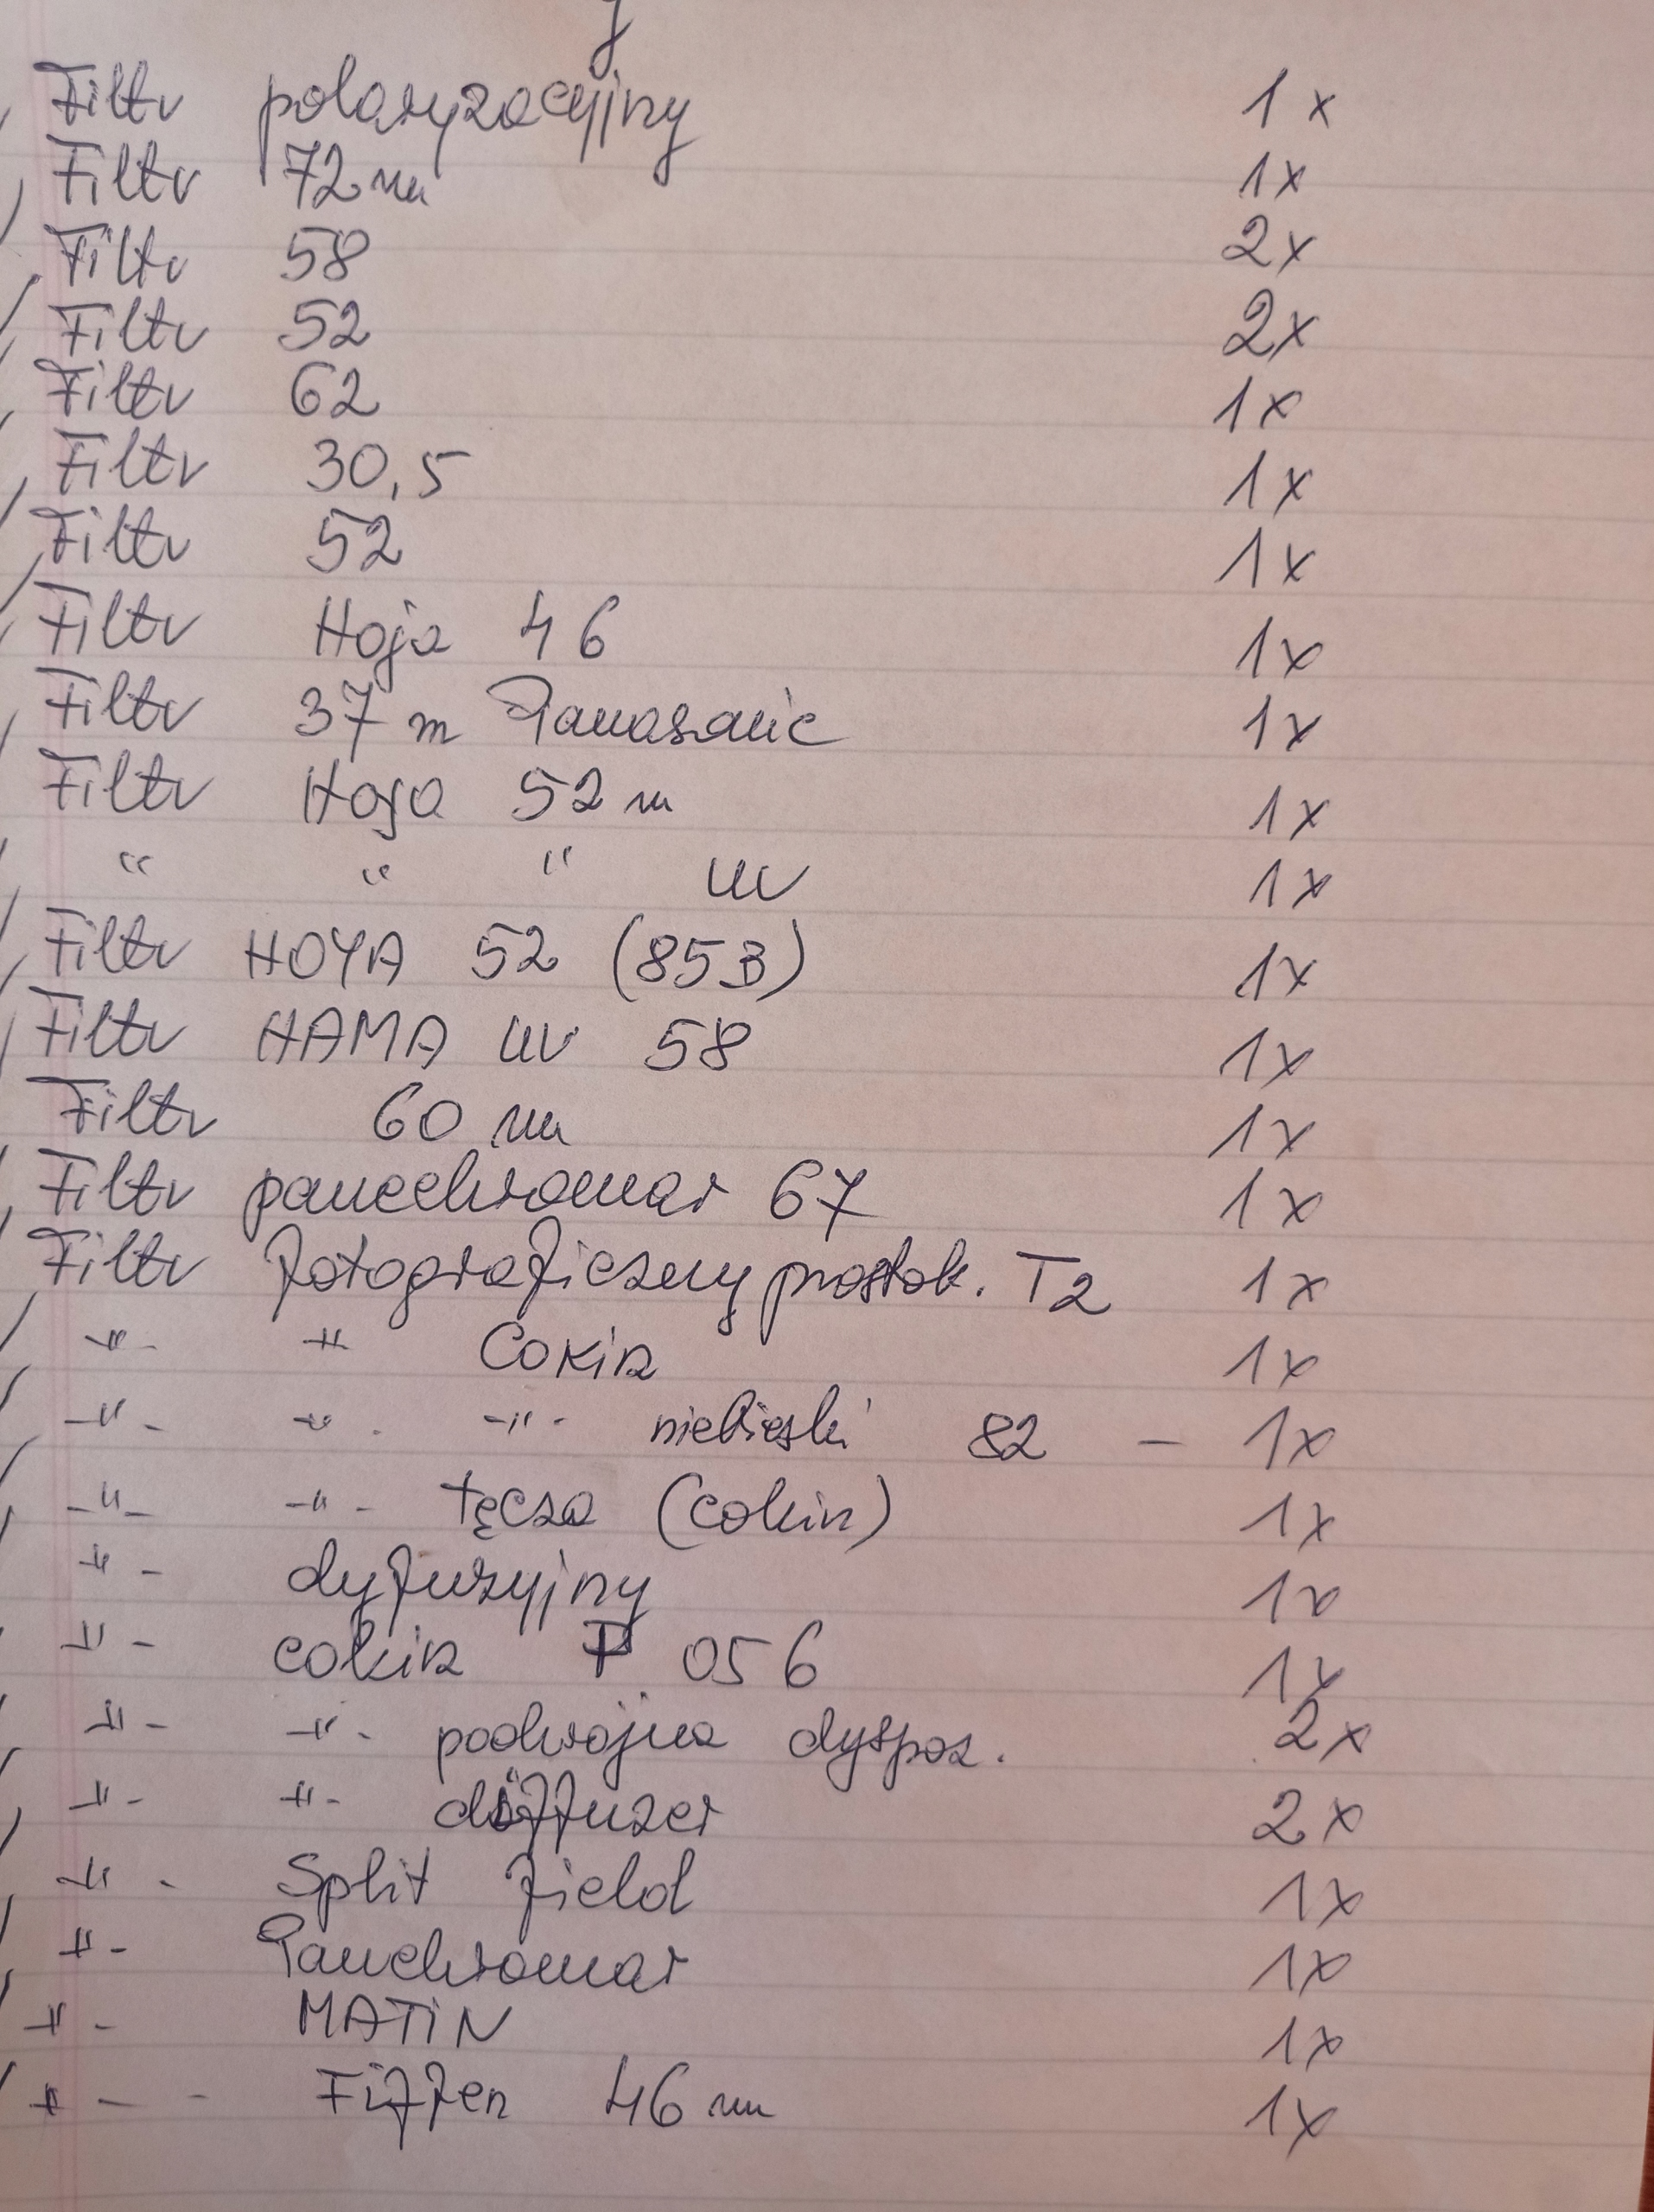 Filtr polaryzacyjny 1x
Filtr 72 mm 1x
Filtr 58 2x
Filtr 52 2x
Filtr 62 1x
Filtr 30,5 1x
Filtr 52 1x
Filtr Hoja 46 1x
Filtr 37 m Panasonic 1x
Filtr Hoja 52 m 1x
" " " UV 1x
Filtr HOYA 52 (85B) 1x
Filtr HAMA UV 58 1x
Filtr 60 mm 1x
Filtr panchromar 67 1x
Filtr fotograficzny prostok. T2 1x
-"- -"- Cokin 1x
-"- -"- -"- niebieski 82 - 1x
-"- -"- tęcza (cokin) 1x
-"- dyfuzyjny 1x
-"- cokin P 056 1x
-"- -"- podwójna dyspoz. 2x
-"- -"- diffuzer 2x
-"- Split field 1x
-"- Panchromar 1x
-"- MATiN 1x
-"- - Fiffen 46 mm 1x